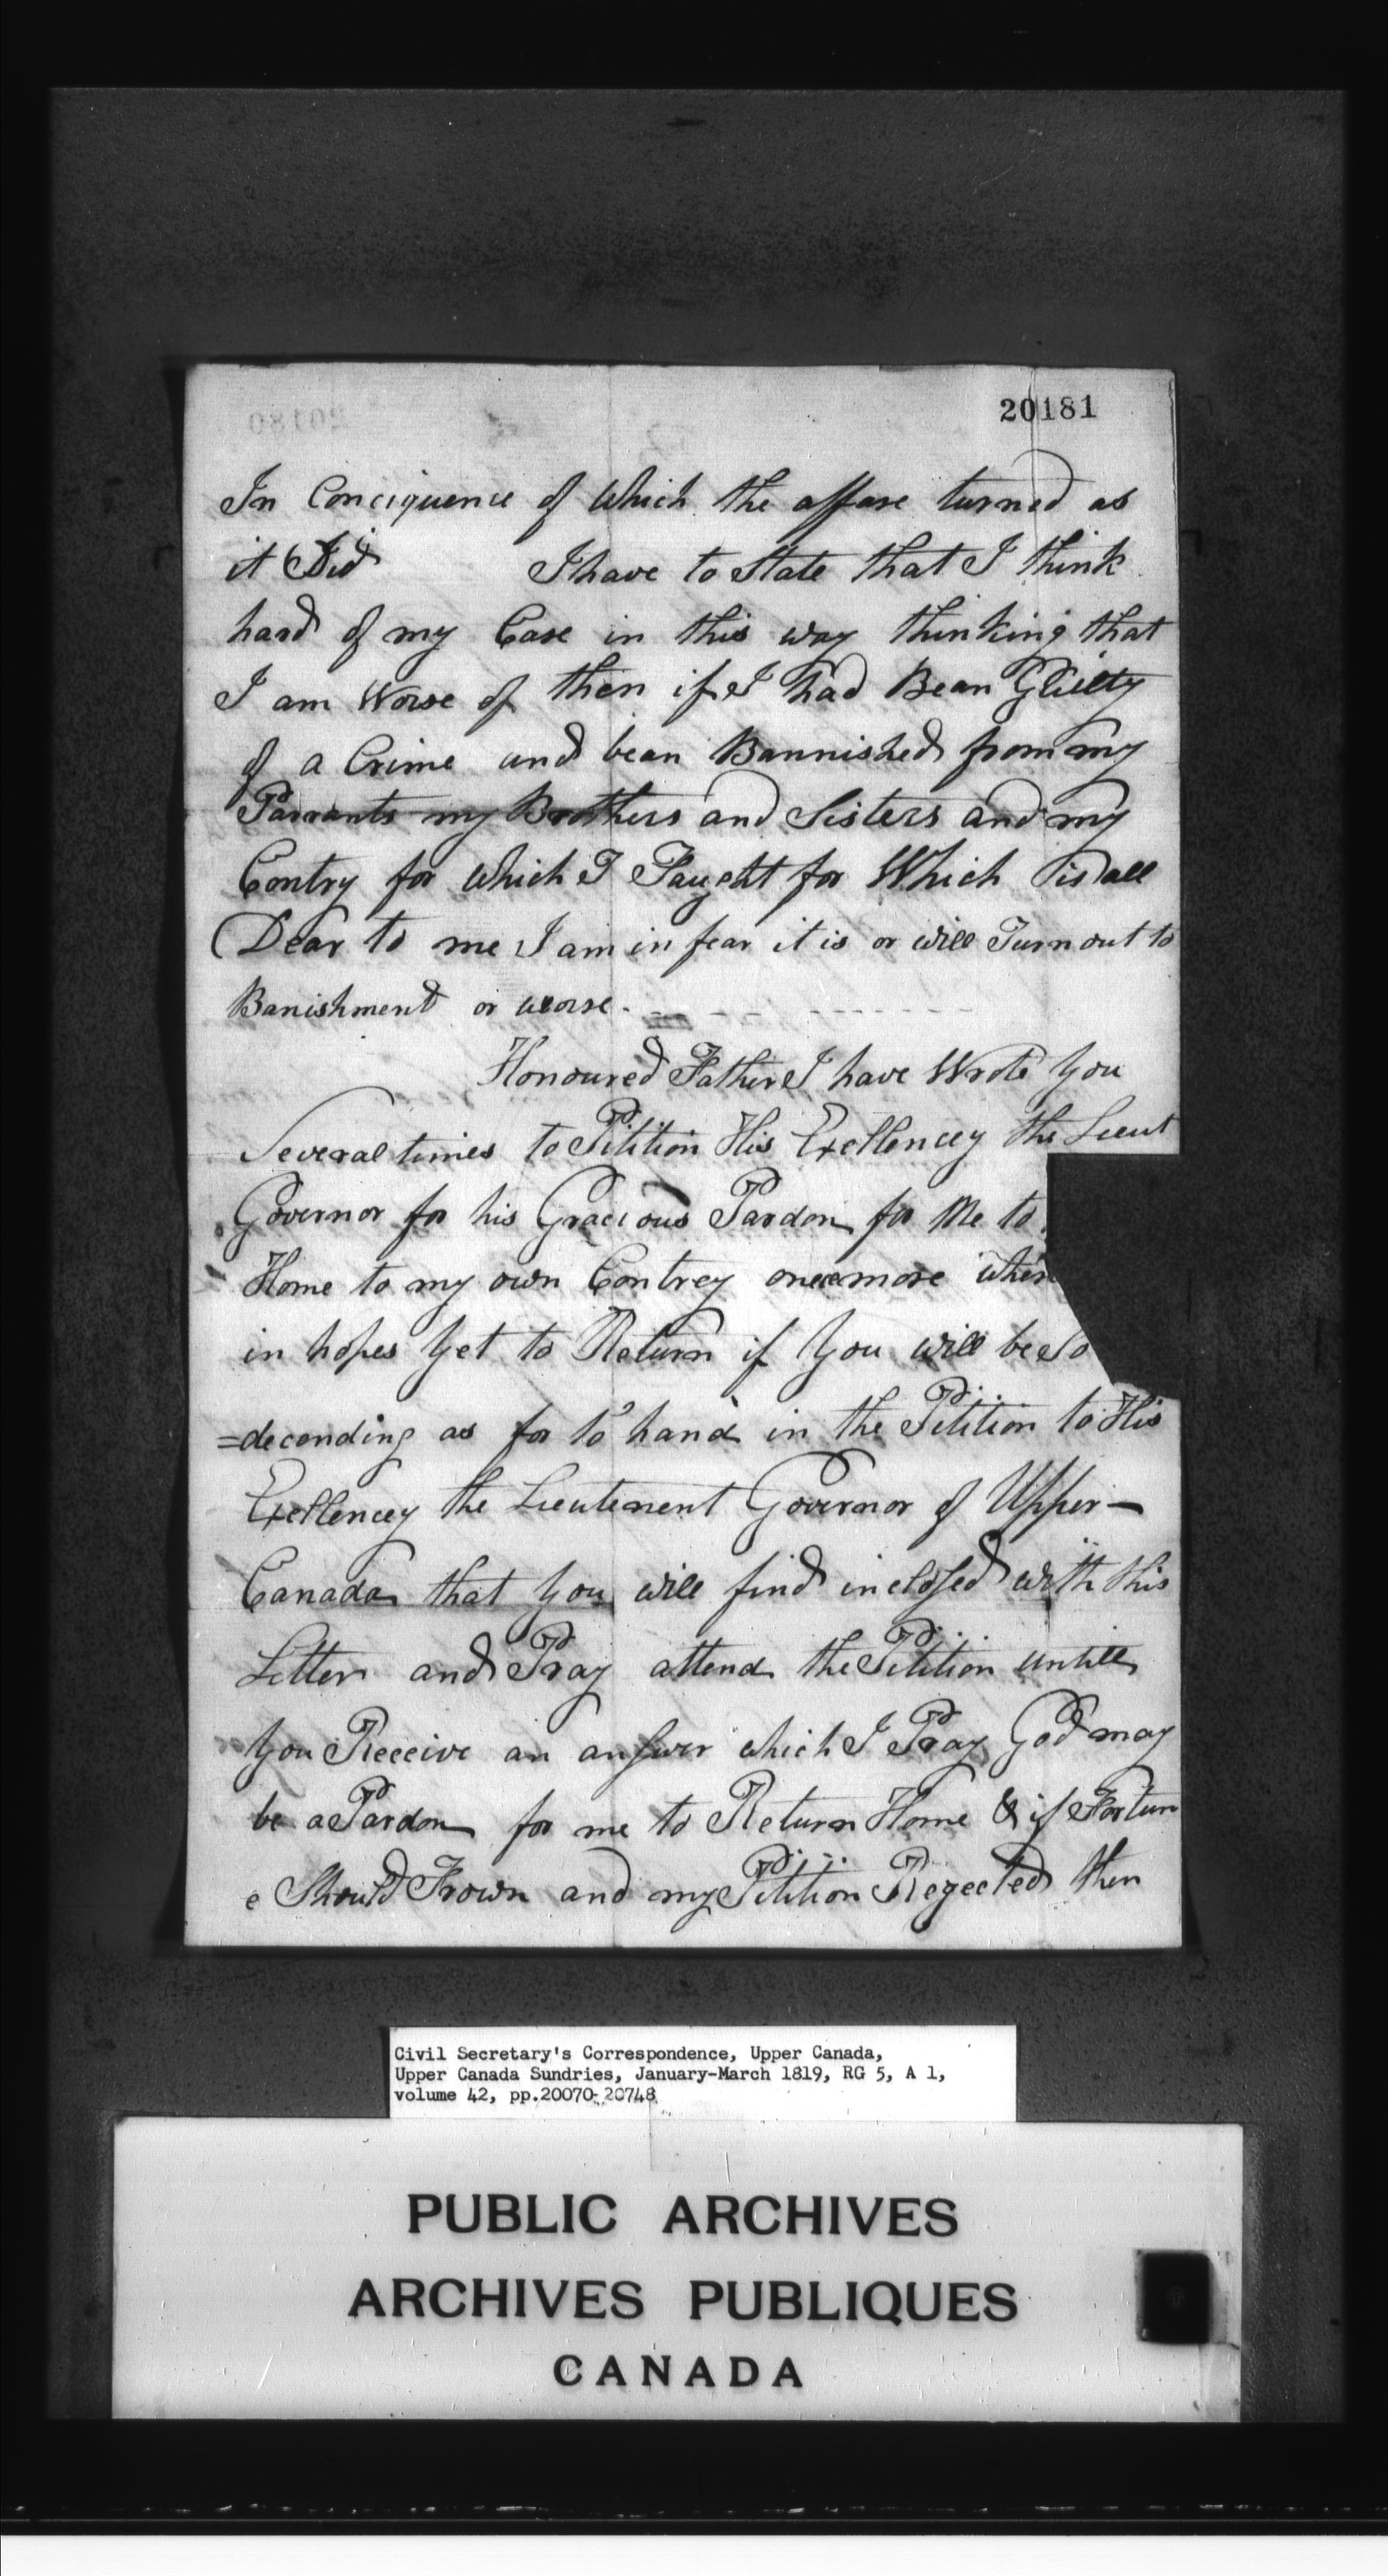 20181
In Conciquence of which the affare turned as
it Did I have to State that I think
hard of my Case in this way thinking that
I am Worse of then if I had Bean Guilty
of a Crime and bean Bannished from my
Parrants my Brothers and Sisters and my
Contry for which I Faught for Which is all
Dear to me I am in fear it is or will Turn out to
Banishment or worse.
Honoured Father I have Wrote You
Several times to Petition His Exellencey the Lieut
Governor for his Gracious Pardon for Me to
Home to my own Contrey once more
in hopes Yet to Return if You will be So
=decending as for to hand in the Petition to His
Exellencey the Lieutenent Governor of Upper-
Canada that You will find inclosed with this
Letter and Pray attend the Petition untill
You Receive an answer which I Pray God may
be a Pardon for me to Return Home & if Fortun
e Should Frown and my Petition Regected then
Civil Secretary's Correspondence, Upper Canada,
Upper Canada Sundries, January-March 1819, RG 5, A 1,
volume 42, pp.20070-20748
PUBLIC ARCHIVES
ARCHIVES PUBLIQUES
CANADA